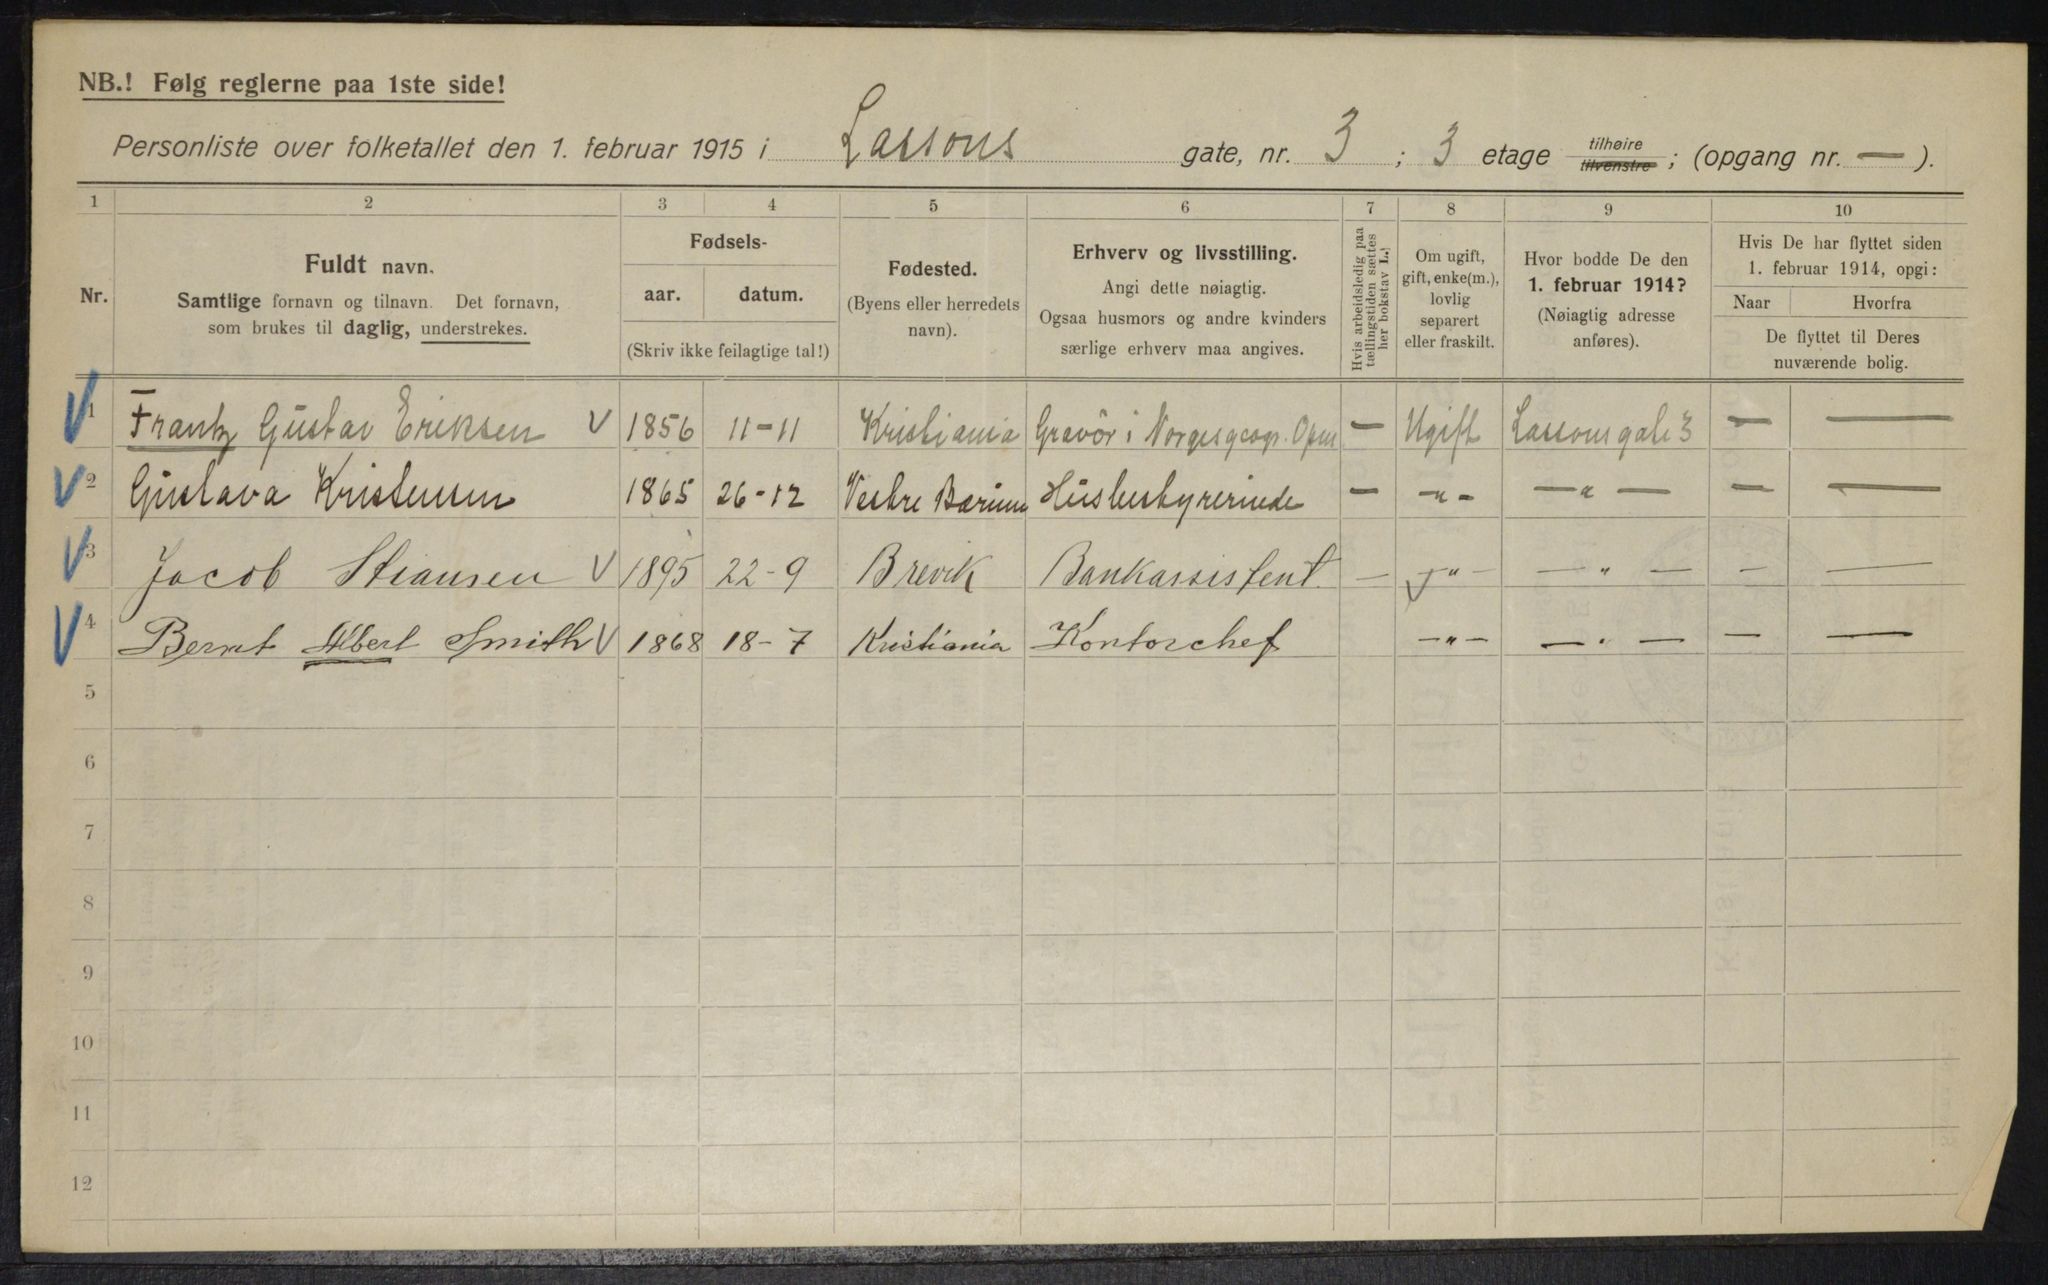 NB.! Følg reglerne paa 1ste side!
Personliste over folketallet den 1. februar 1915 i Lassons gate, nr. 3 ; 3 etage tilhøire tilvenstre ; (opgang nr. — ).
1 2 3 4 5 6 7 8 9 10
Nr.
Fuldt navn.
Samtlige fornavn og tilnavn. Det fornavn,
som brukes til daglig, understrekes.
Fødsels-
aar. datum.
(Skriv ikke feilagtige tal!)
Fødested.
(Byens eller herredets
navn).
Erhverv og livsstilling.
Angi dette nøiagtig.
Ogsaa husmors og andre kvinders
særlige erhverv maa angives.
Hvis arbeidsledig paa
tællingstiden sættes
her bokstav L.
Om ugift,
gift, enke(m.),
lovlig
separert
eller fraskilt.
Hvor bodde De den
1. februar 1914?
(Nøiagtig adresse
anføres).
Hvis De har flyttet siden
1. februar 1914, opgi:
Naar Hvorfra
De flyttet til Deres
nuværende bolig.
1 Frantz Gustav Eriksen V 1856 11-11 Kristiania Gravör i Norges geogr. Opm — Ugift Lassonsgate 3 — —
2 Gustava Kristensen 1865 26-12 Vestre Bærum Husbestyrerinde — -"- —"— — —
3 Jacob Stiansen V 1895 22-9 Brevik Bankassistent. — -"- —"— — —
4 Bernt Albert Smith V 1868 18-7 Kristiania Kontorchef -"- —"— — —
5
6
7
8
9
10
11
12